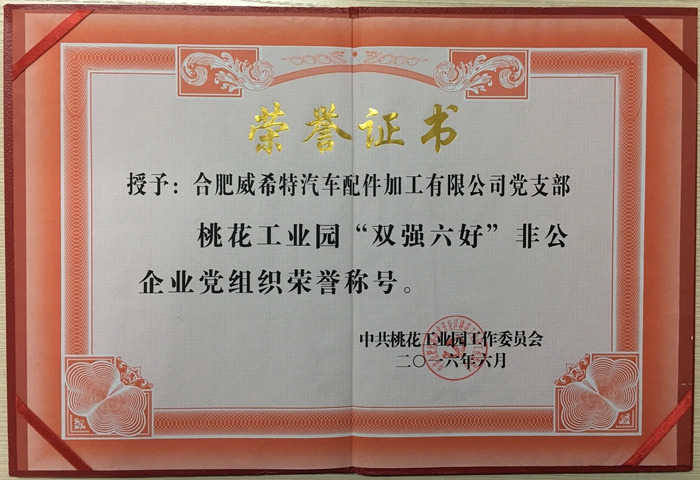 荣誉证书
授予：合肥威希特汽车配件加工有限公司党支部
桃花工业园“双强六好”非公
企业党组织荣誉称号。
中共桃花工业园工作委员会
二〇一六年六月